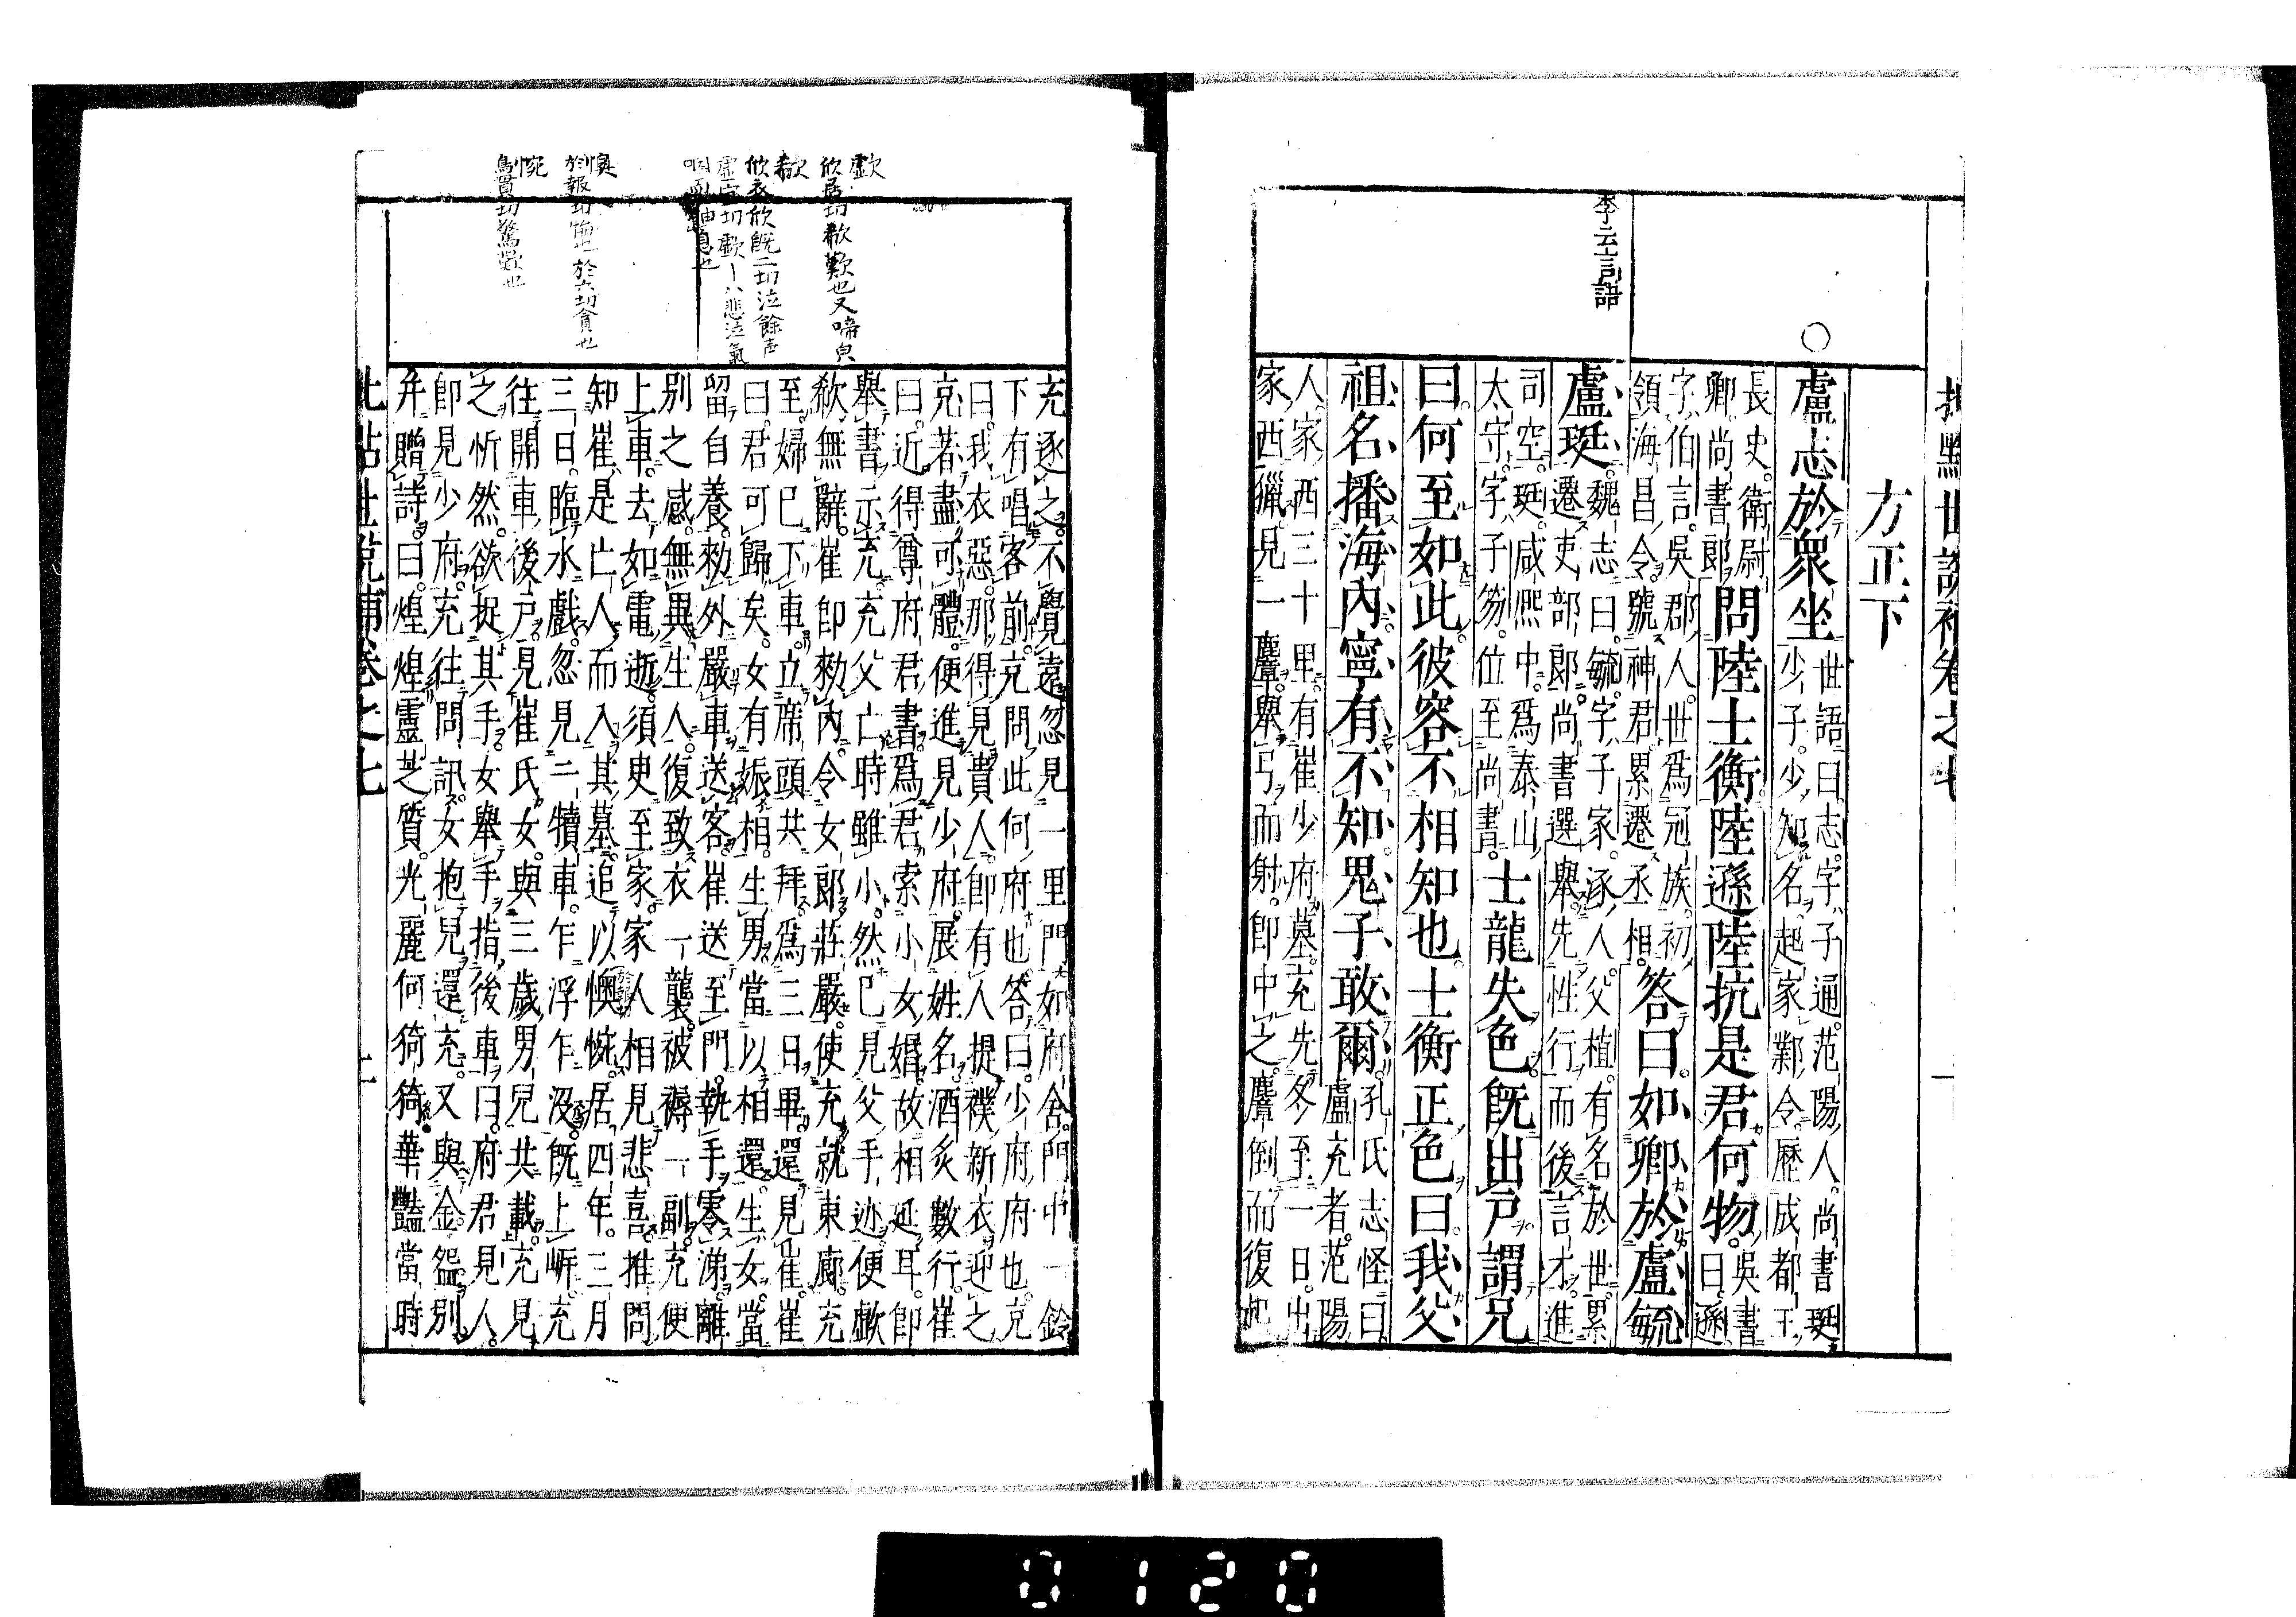 批點世說補卷之七 一
方正下
盧志於衆坐世語曰志字子通范陽人尚書珽少子少知名起家鄴令歷成都王
長史衛尉卿尚書郎問陸士衡陸遜陸抗是君何物吳書曰遜
字伯言吳郡人世爲冠族初領海昌令號神君累遷丞相答曰如卿於盧毓
盧珽魏志曰毓字子家涿人父植有名於世累遷吏部郎尚書選舉先性行而後言才進
司空珽咸熙中爲泰山太守字子笏位至尚書士龍失色既出戶謂兄
曰何至如此彼容不相知也士衡正色曰我父
祖名播海內寧有不知鬼子敢爾孔氏志怪曰盧充者范陽
人家西三十里有崔少府墓充先冬至一日出家西獵見一麞舉弓而射即中之麞倒而復起
李云言語
充逐之不覺遠忽見一里門如府舍門中一鈴
下有唱客前充問此何府也答曰少府府也充
曰我衣惡那得見貴人即有人提襆新衣迎之
充著盡可體便進見少府展姓名酒炙數行崔
曰近得尊府君書爲君索小女婚故相延耳即
舉書示充充父亡時雖小然已見父手迹便歔
欷無辭崔即勑內令女郎莊嚴使充就東廊充
至婦已下車立席頭共拜爲三日畢還見崔崔
曰君可歸矣女有娠相生男當以相還生女當
留自養勑外嚴車送客崔送至門執手零涕離
別之感無異生人復致衣一襲被褥一副充便
上車去如電逝須臾至家家人相見悲喜推問
知崔是亡人而入其墓追以懊惋居四年三月
三日臨水戲忽見二犢車乍浮乍沒既上岸充
往開車後戶見崔氏女與三歲男兒共載充見
之忻然欲捉其手女舉手指後車曰府君見人
即見少府充往問訊女抱兒還充又與金鋺別
并贈詩曰煌煌靈芝質光麗何猗猗華豔當時
批點世說補卷之七 一
歔
欣居切欷歎也又啼皃
欷
欣衣欣既二切泣餘声
懊
於報切悔也於六切貪也
惋
烏貫切驚歎也
0120